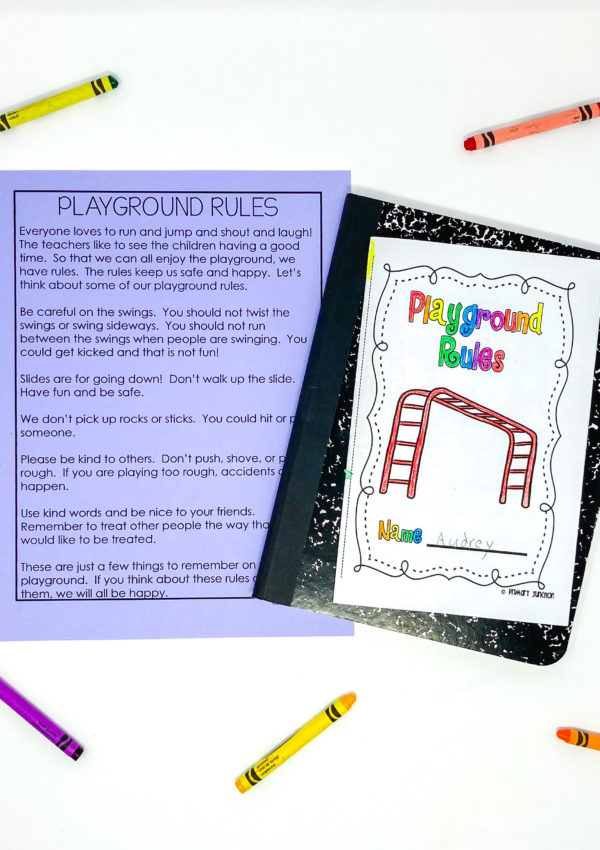 PLAYGROUND RULES
Everyone loves to run and jump and shout and laugh!
The teachers like to see the children having a good
time.  So that we can all enjoy the playground, we
have rules.  The rules keep us safe and happy.  Let's
think about some of our playground rules.
Be careful on the swings.  You should not twist the
swings or swing sideways.  You should not run
between the swings when people are swinging.  You
could get kicked and that is not fun!
Slides are for going down!  Don't walk up the slide.
Have fun and be safe.
We don't pick up rocks or sticks.  You could hit or
someone.
Please be kind to others.  Don't push, shove, or
rough.  If you are playing too rough, accidents
happen.
Use kind words and be nice to your friends.
Remember to treat other people the way
would like to be treated.
These are just a few things to remember on
playground.  If you think about these rules
them, we will all be happy.
Playground
Rules
Name Audrey
© Primary Junction